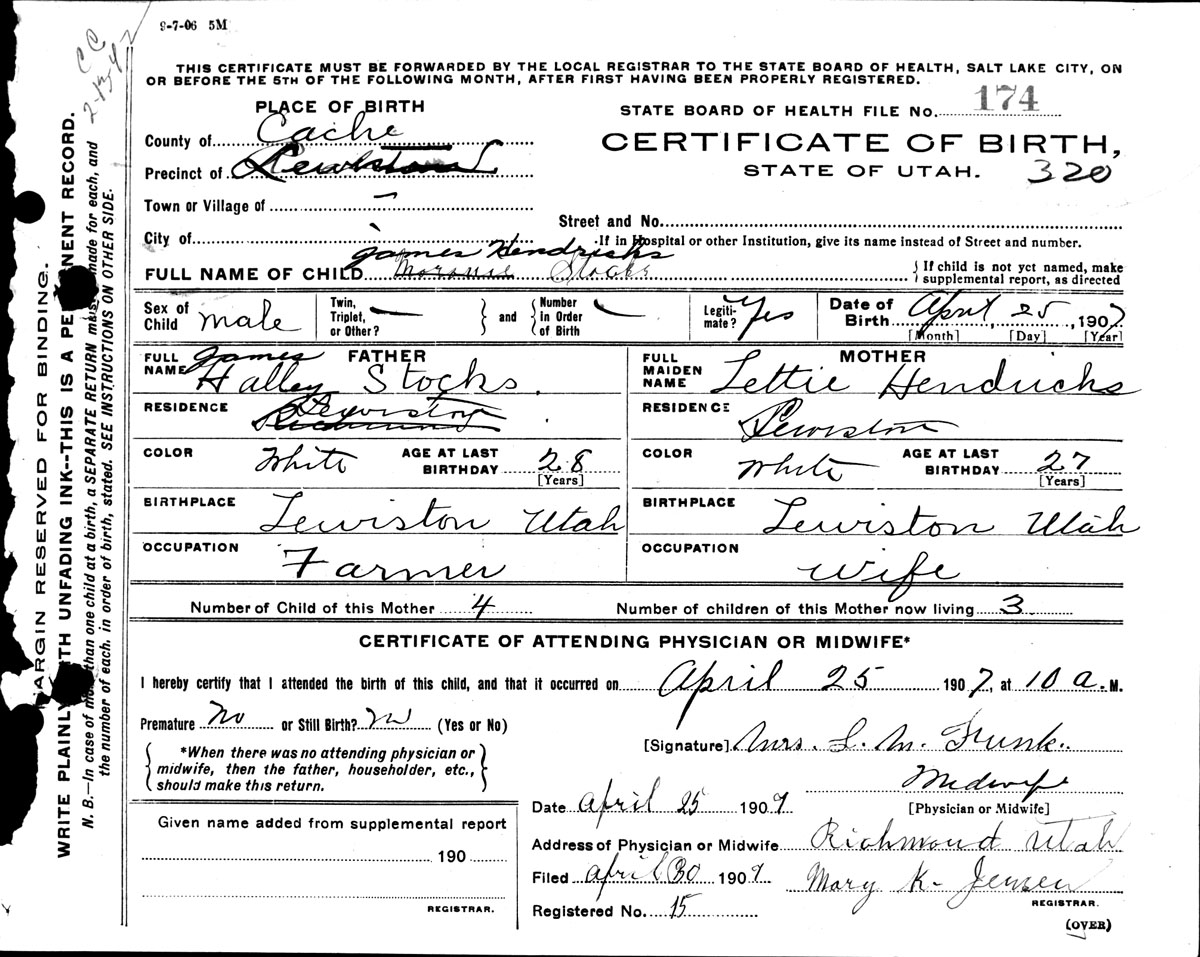 9-7-06 5M
CC
2-13-42
THIS CERTIFICATE MUST BE FORWARDED BY THE LOCAL REGISTRAR TO THE STATE BOARD OF HEALTH, SALT LAKE CITY, ON
OR BEFORE THE 5TH OF THE FOLLOWING MONTH, AFTER FIRST HAVING BEEN PROPERLY REGISTERED.
PLACE OF BIRTH
STATE BOARD OF HEALTH FILE No. 174
County of Cache
CERTIFICATE OF BIRTH,
Precinct of
STATE OF UTAH. 320
Town or Village of -
Street and No.
City of
If in Hospital or other Institution, give its name instead of Street and number.
James Hendricks
FULL NAME OF CHILD Stocks
{ If child is not yet named, make
supplemental report, as directed
Sex of Child male
Twin, Triplet, or Other? —
} and {
Number in Order of Birth
Legitimate? Yes
Date of Birth April 25, 1907
[Month] [Day] [Year]
FULL NAME FATHER James Halley Stocks.
FULL MAIDEN NAME MOTHER Lettie Hendricks
RESIDENCE Lewiston
RESIDENCE Lewiston
COLOR White AGE AT LAST BIRTHDAY 28 [Years]
COLOR White AGE AT LAST BIRTHDAY 27 [Years]
BIRTHPLACE Lewiston Utah
BIRTHPLACE Lewiston Utah
OCCUPATION Farmer
OCCUPATION Wife
Number of Child of this Mother 4 Number of children of this Mother now living 3
CERTIFICATE OF ATTENDING PHYSICIAN OR MIDWIFE*
I hereby certify that I attended the birth of this child, and that it occurred on April 25 1907, at 10 a. M.
Premature No or Still Birth? No (Yes or No)
[Signature] Mrs. L. M. Funk.
{ *When there was no attending physician or
midwife, then the father, householder, etc.,
should make this return. }
Midwife
[Physician or Midwife]
Date April 25 1907
Given name added from supplemental report
Address of Physician or Midwife Richmond Utah
190
Filed April 30 1907 Mary K. Jensen
REGISTRAR.
REGISTRAR.
Registered No. 15
(OVER)
MARGIN RESERVED FOR BINDING.
WRITE PLAINLY WITH UNFADING INK--THIS IS A PERMANENT RECORD.
N. B.—In case of more than one child at a birth, a SEPARATE RETURN must be made for each, and
the number of each, in order of birth, stated. SEE INSTRUCTIONS ON OTHER SIDE.